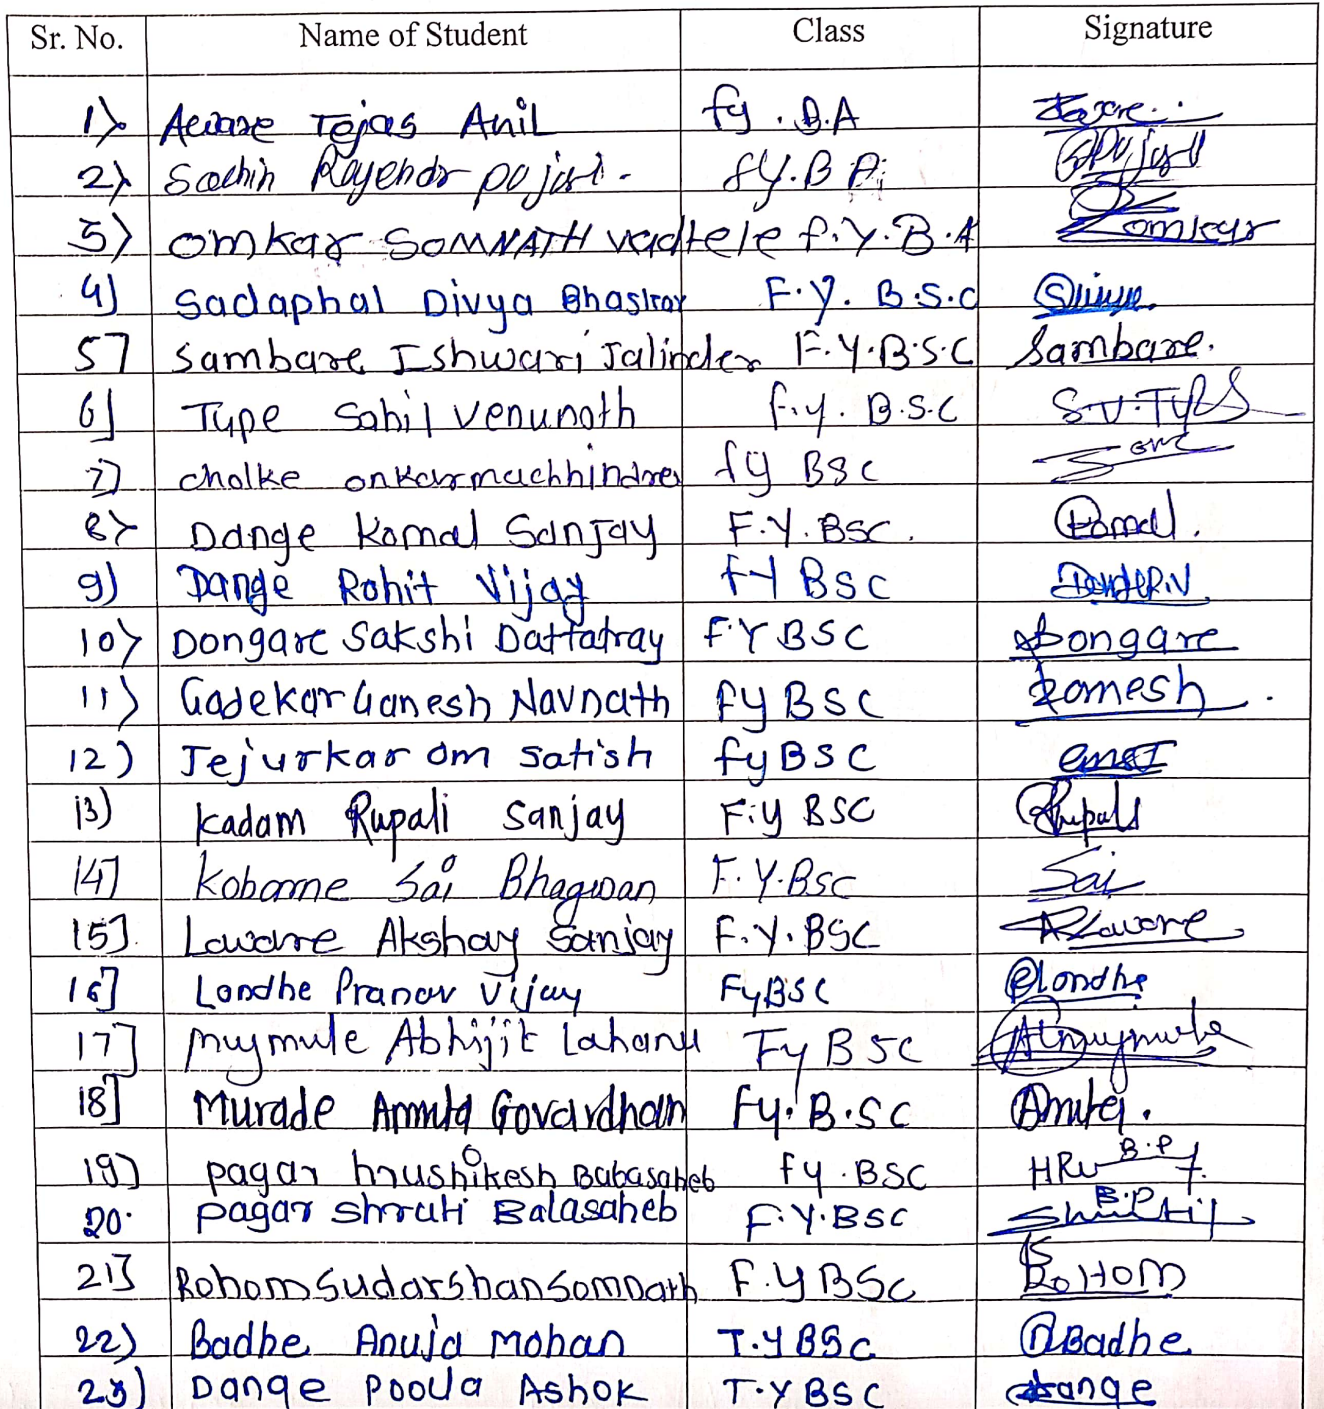 Sr. No. Name of Student Class Signature
1) Aware Tejas Anil fy . B.A
2) Sachin Rajendr pujari. fy.B A.
3) omkar SOMNATH vadtele f.Y.B.A omkar
4) Sadaphal Divya Bhaskar F.y. B.S.C Divya
5] Sambare Ishwari Jalinder F.Y.B.S.C Sambare.
6] Tupe Sahil Venunath f.y. B.S.C S.V.Tupe
7) chalke onkar machhindra fy BSC
8) Dange Komal Sanjay F.Y.BSC. Komal.
9) Dange Rohit Vijay fy BSC Dange R.V
10) Dongare Sakshi Dattatray F.Y BSC Dongare
11) Gadekar Ganesh Navnath fy BSC
12) Jejurkar om satish fy BSC
13) Kadam Rupali Sanjay F.y BSC Rupali
14] Kobarne Sai Bhagwan F.Y.BSC Sai
15]. Laware Akshay Sanjay F.Y.BSC ALaware
16] Londhe Pranav Vijay FyBSC PLondhe
17] mujmule Abhijit Lahanu Fy BSC
18] Murade Amruta Govardhan Fy.B.SC Amruta.
19) pagar hrushikesh Babasaheb fy .BSC B.P
20. pagar shruti Balasaheb F.Y.BSC B.P
21] Rohom Sudarshan Somnath F.Y BSC ROHOM
22) Badhe Anuja Mohan T.Y BSC ABadhe
23) Dange Pooja Ashok T.Y BSC Dange